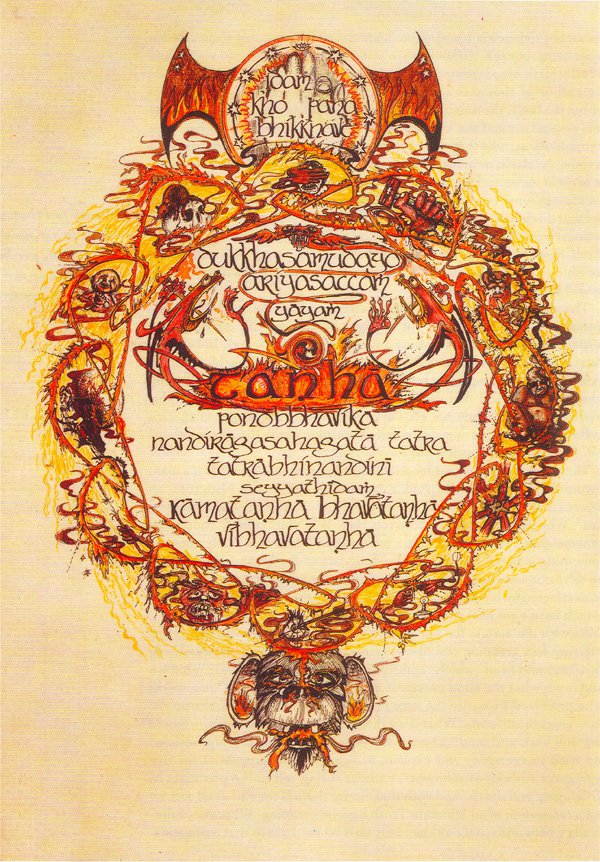 idaṃ
kho pana
bhikkhave
dukkhasamudayo
ariyasaccaṃ
yāyaṃ
taṇhā
ponobbhavikā
nandirāgasahagatā tatra
tatrābhinandinī
seyyathidaṃ
kāmataṇhā bhavataṇhā
vibhavataṇhā